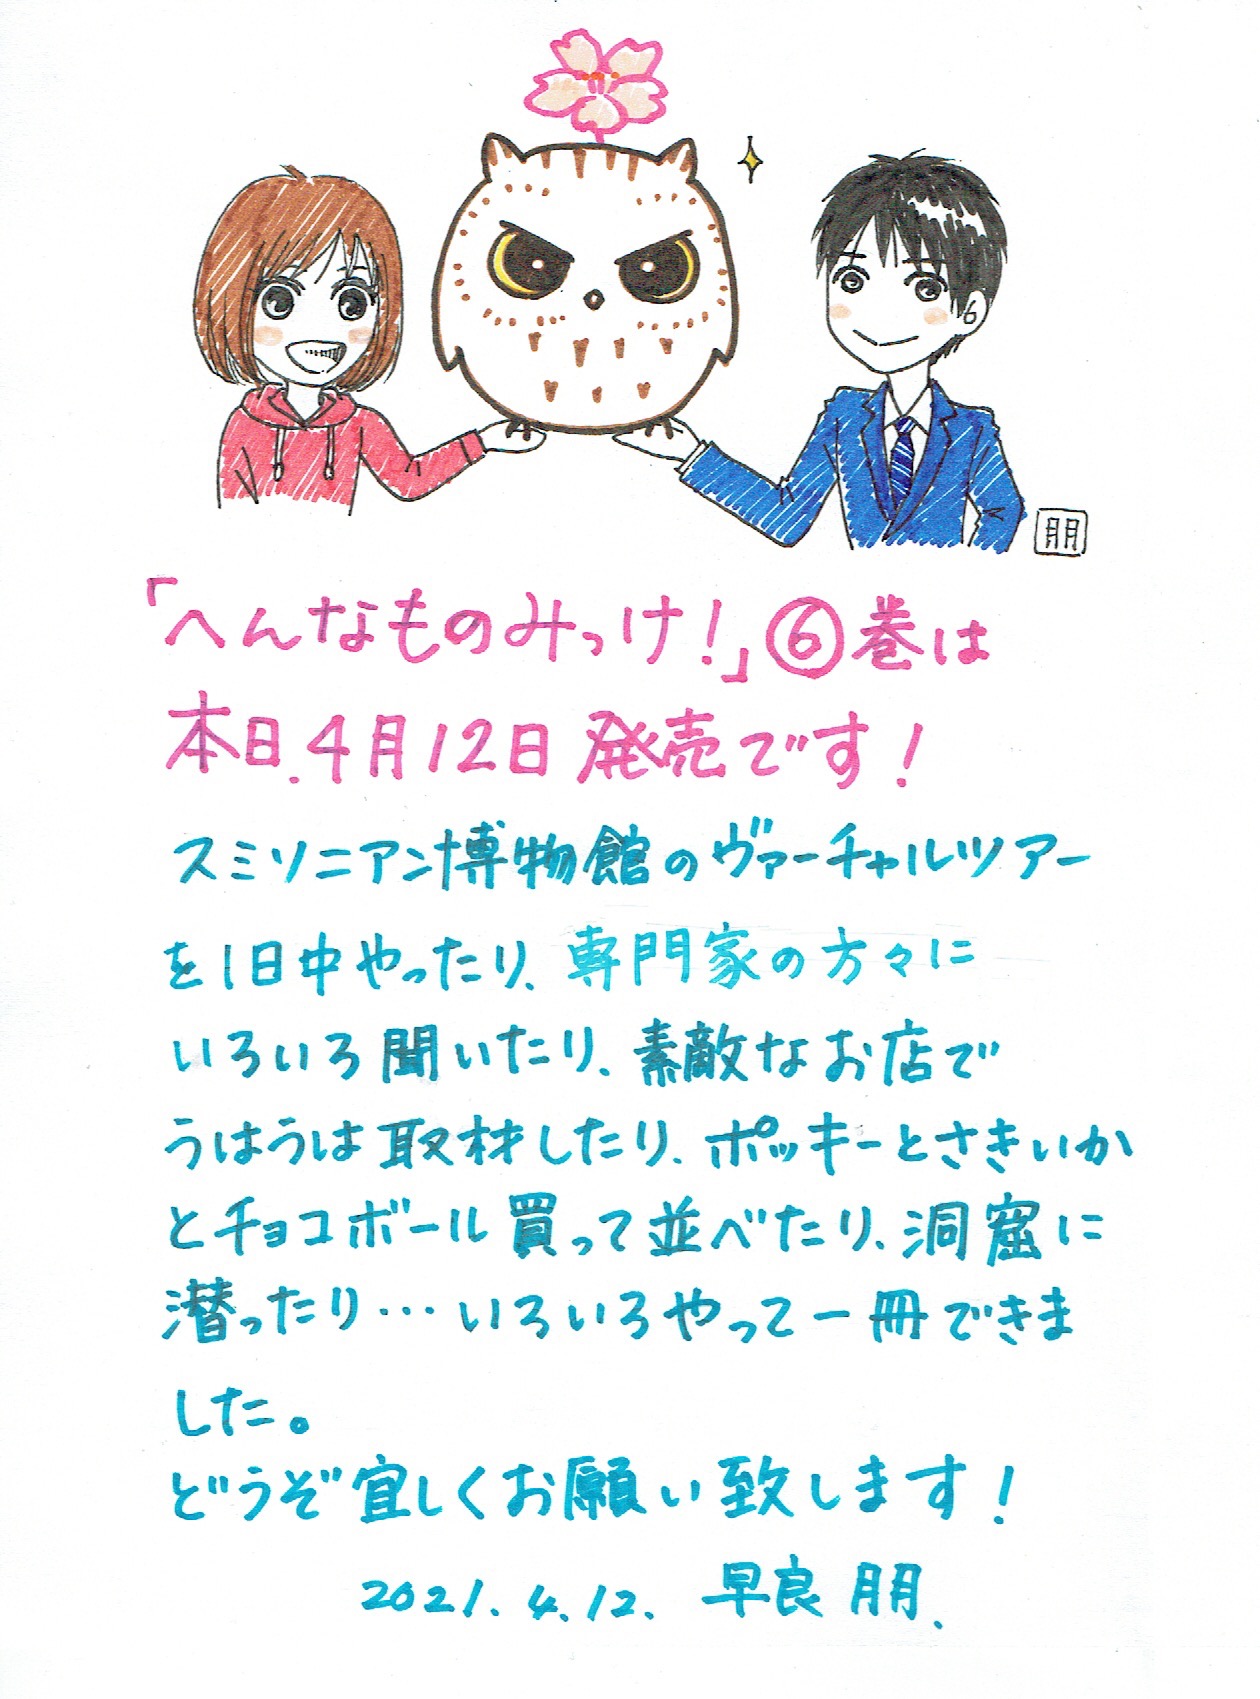 朋
「へんなものみっけ！」⑥巻は
本日、4月12日発売です！
スミソニアン博物館のヴァーチャルツアー
を1日中やったり、専門家の方々に
いろいろ聞いたり、素敵なお店で
うはうは取材したり、ポッキーとさきいか
とチョコボール買って並べたり、洞窟に
潜ったり…いろいろやって一冊できま
した。
どうぞ宜しくお願い致します！
2021.4.12. 早良朋、